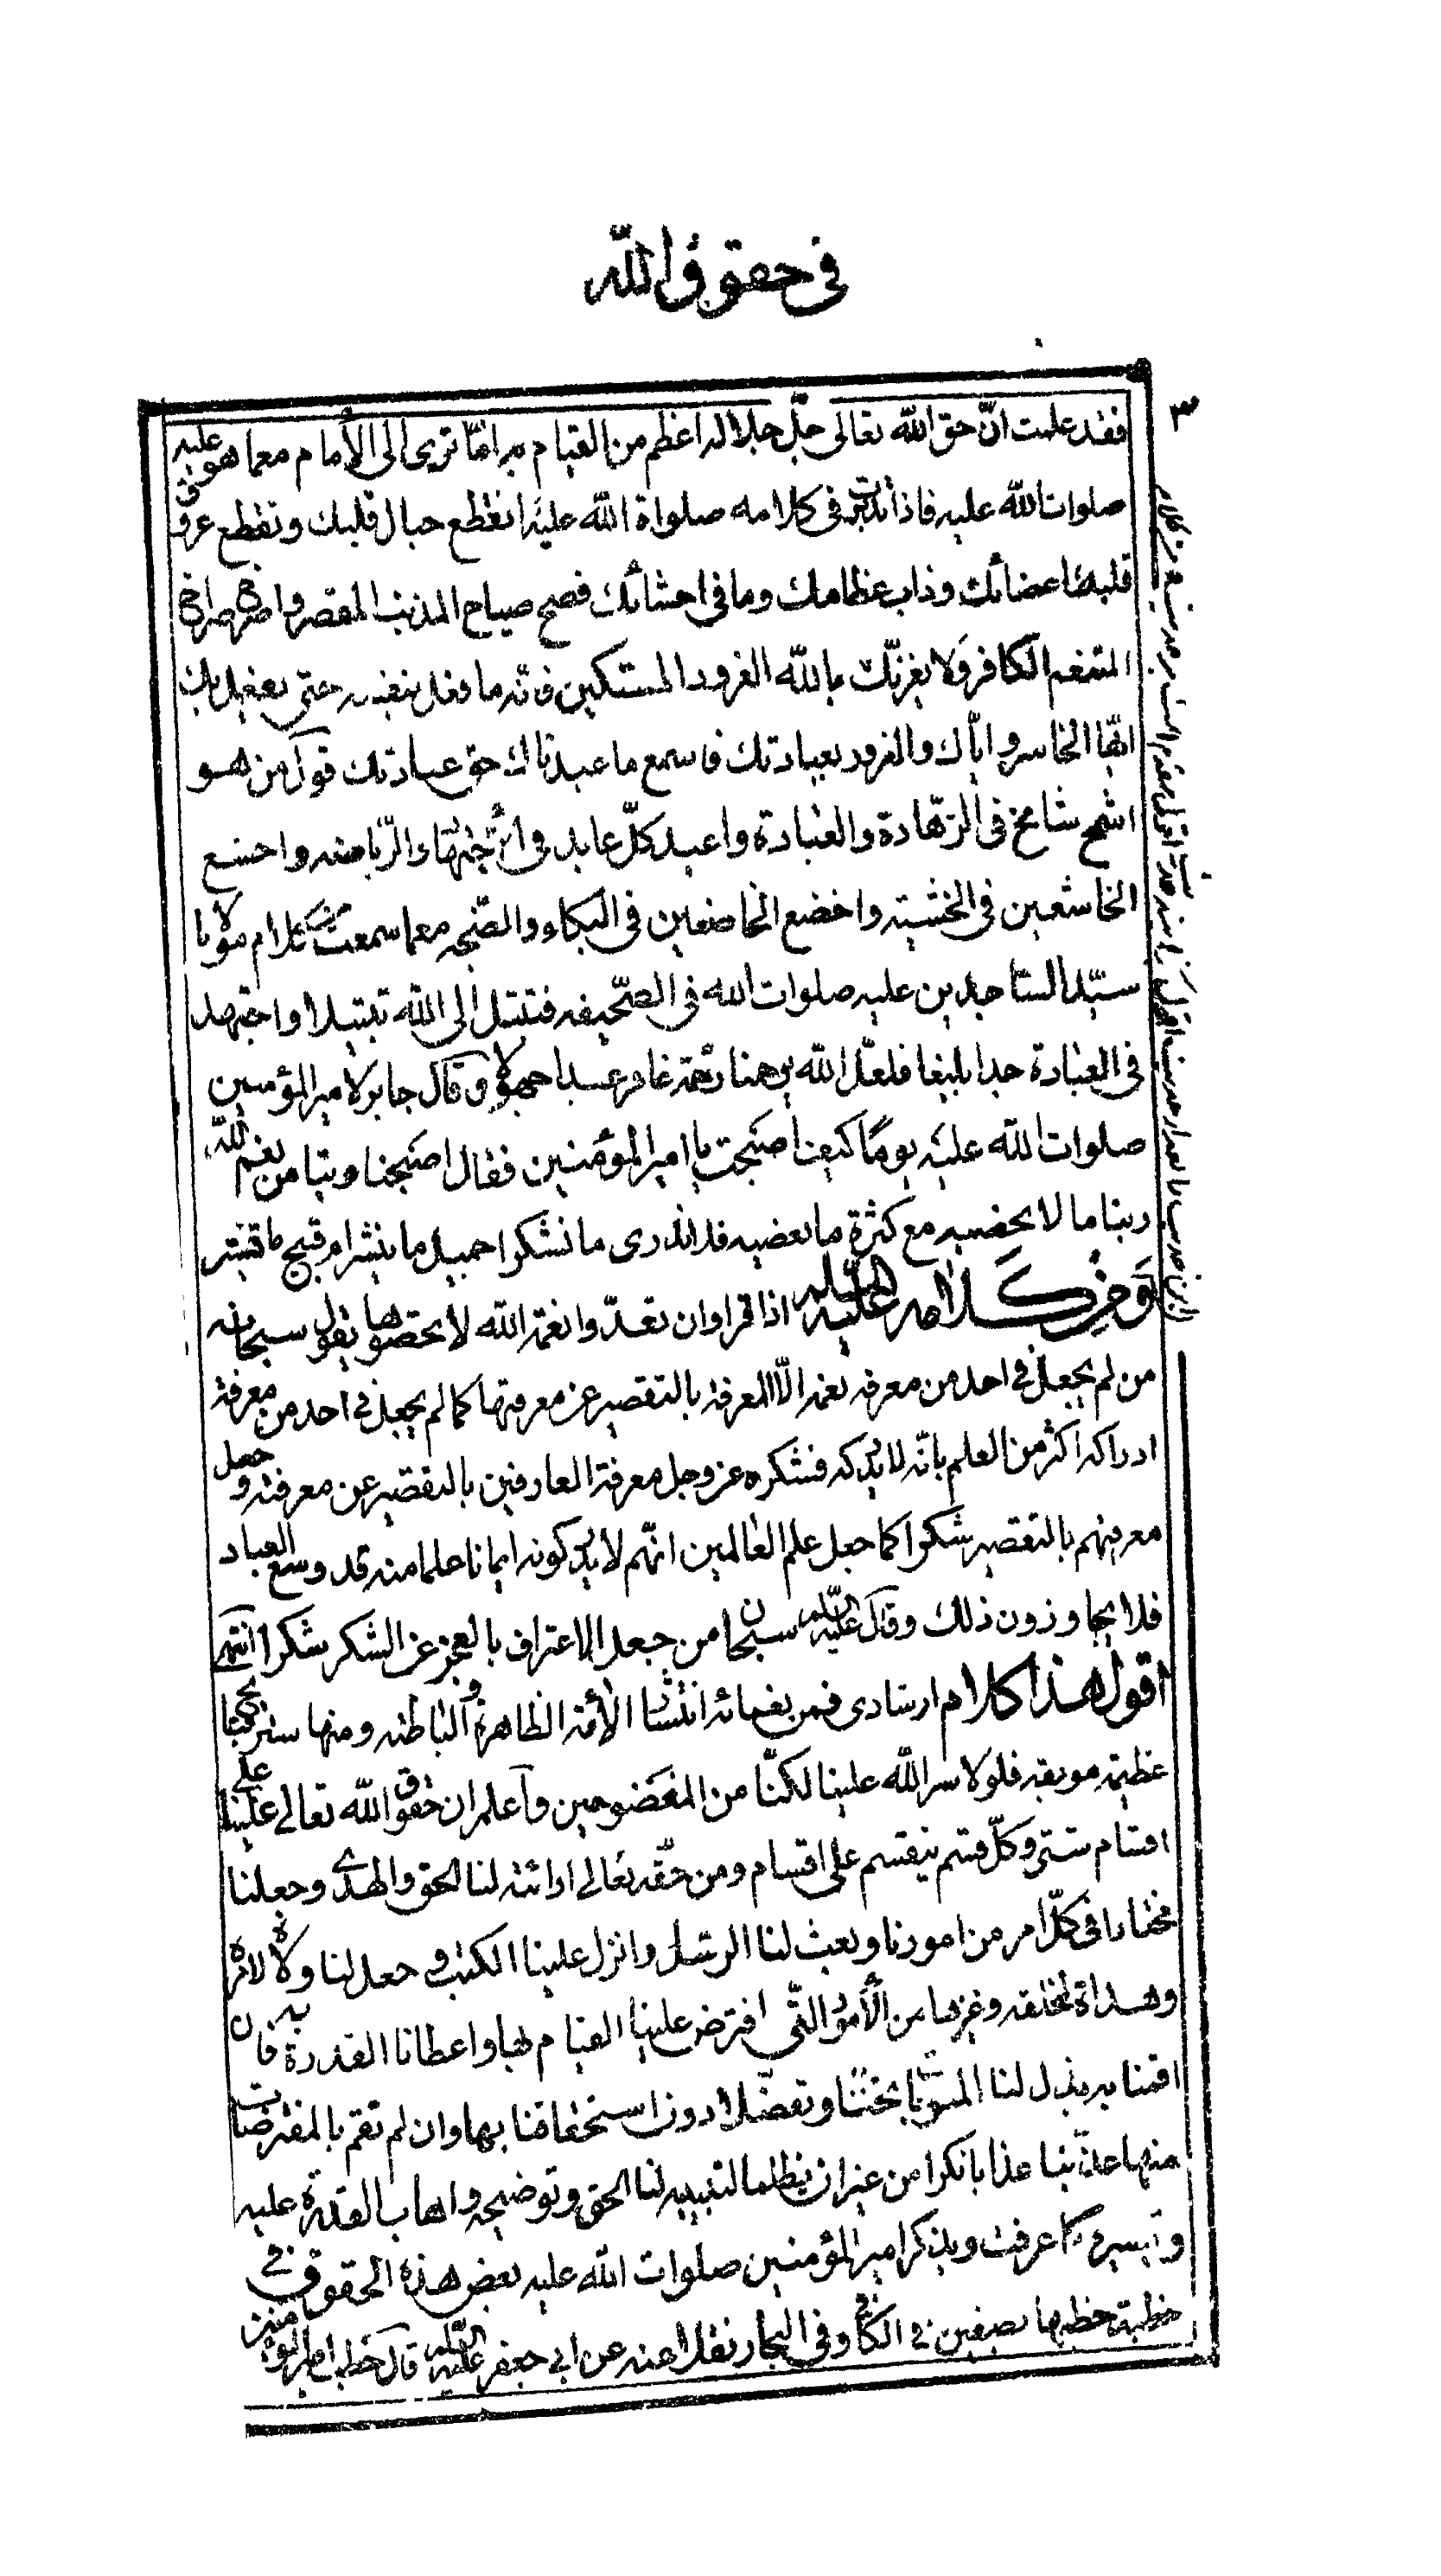 في حقوق الله
٣
فقد علمت انّ حق الله تعالى جلّ جلاله اعظم من القيام به امّا ترى الى الأمام مع ما هو عليه
صلوات الله عليه فاذا تدبّرت فى كلامه صلواة الله عليه انقطع حبال قلبك وتقطع عروق
قلبك اعضائك وذاب عظامك وما فى احشائك فصح صياح المذنب المقصر واصرخ صراخ
الكافر ولا يغرنّك بالله الغرور المستكين فانه ما فعل بنفسه حتى يفعل بك
ايّها الخاسر وايّاك والغرور بعبادتك فاسمع ما عبدناك حق عبادتك قول من هو
اشمخ شامخ فى الزّهادة والعبادة واعبد كلّ عابد فى والرّياضه واخشع
الخاشعين فى الخشيته واخضع الخاضعين فى البكاء والضّجه مع ما سمعت كلام مولانا
سيّد السّاجدين عليه صلوات الله فى الصّحيفه فتبتل الى الله تبتيلا واجتهد
فى العبادة جدا بليغا فلعلّ الله يرحمنا رحمة وقال جابر لامير المؤمنين
صلوات الله عليه يومًا كيف اصبحت يا امير المؤمنين فقال اصبحنا وبنا من نعم الله
ربنا ما لا نحصيه مع كثرة ما نعصيه فلا ندرى ما نشكر اجميل ما ينشر ام قبيح ما يستر
ومن كلامه عليه السلام اذا قرا وان تعدّوا نعمة الله لا تحصوها يقول سبحانه
من لم يجعل فى احد من معرفه نعمه الّا المعرفة بالتقصير عن معرفتها كما لم يجعل فى احد من معرفة
ادراكه اكثر من العلم بانّه لا يدركه فشكره عز وجل معرفة العارفين بالتقصير عن معرفته وجعل
معرفتهم بالتقصير شكرا كما جعل علم العالمين انّهم لا يدركونه ايمانا علما منه قد وسع العباد
فلا يجاوزون ذلك وقال عليه السلام سبحان من جعل الاعتراف بالعجز عن الشكر شكرا انتهى
اقول هذا كلام ارشادى فمن نعمائه الظاهرة والباطنه ومنها ستر
عظيمة موبقه فلولا ستر الله علينا لكنّا من المفضوحين واعلم ان حقوق الله تعالى علينا على
اقسام شتى وكلّ قسم ينقسم على اقسام ومن حقّه تعالى ارائته لنا الحق والهدى وجعلنا
مختارا فى كلّ امر من امورنا وبعث لنا الرسل وانزل علينا الكتب وجعل لنا ولاة لامره
وهداة لخلقه وغيرها من الأمور الّتى افترض علينا القيام لها واعطانا القدرة به فان
اقمنا به بذل لنا المثوبات تحننا وتفضّلا دون استحقاقنا بها وان لم نقم بالمفترضات
منها عذّبنا عذابا نكرا من غير ان يظلمنا لتبيينه لنا الحق وتوضيحه واهاب القدرة عليه
وتيسيره كما عرفت ويذكر امير المؤمنين صلوات الله عليه بعض هذه الحقوق فى
خطبة خطبها بصفين فى الكافى وفى البحار نقلا عنه عن ابى جعفر عليه السلام قال خطب امير المؤمنين